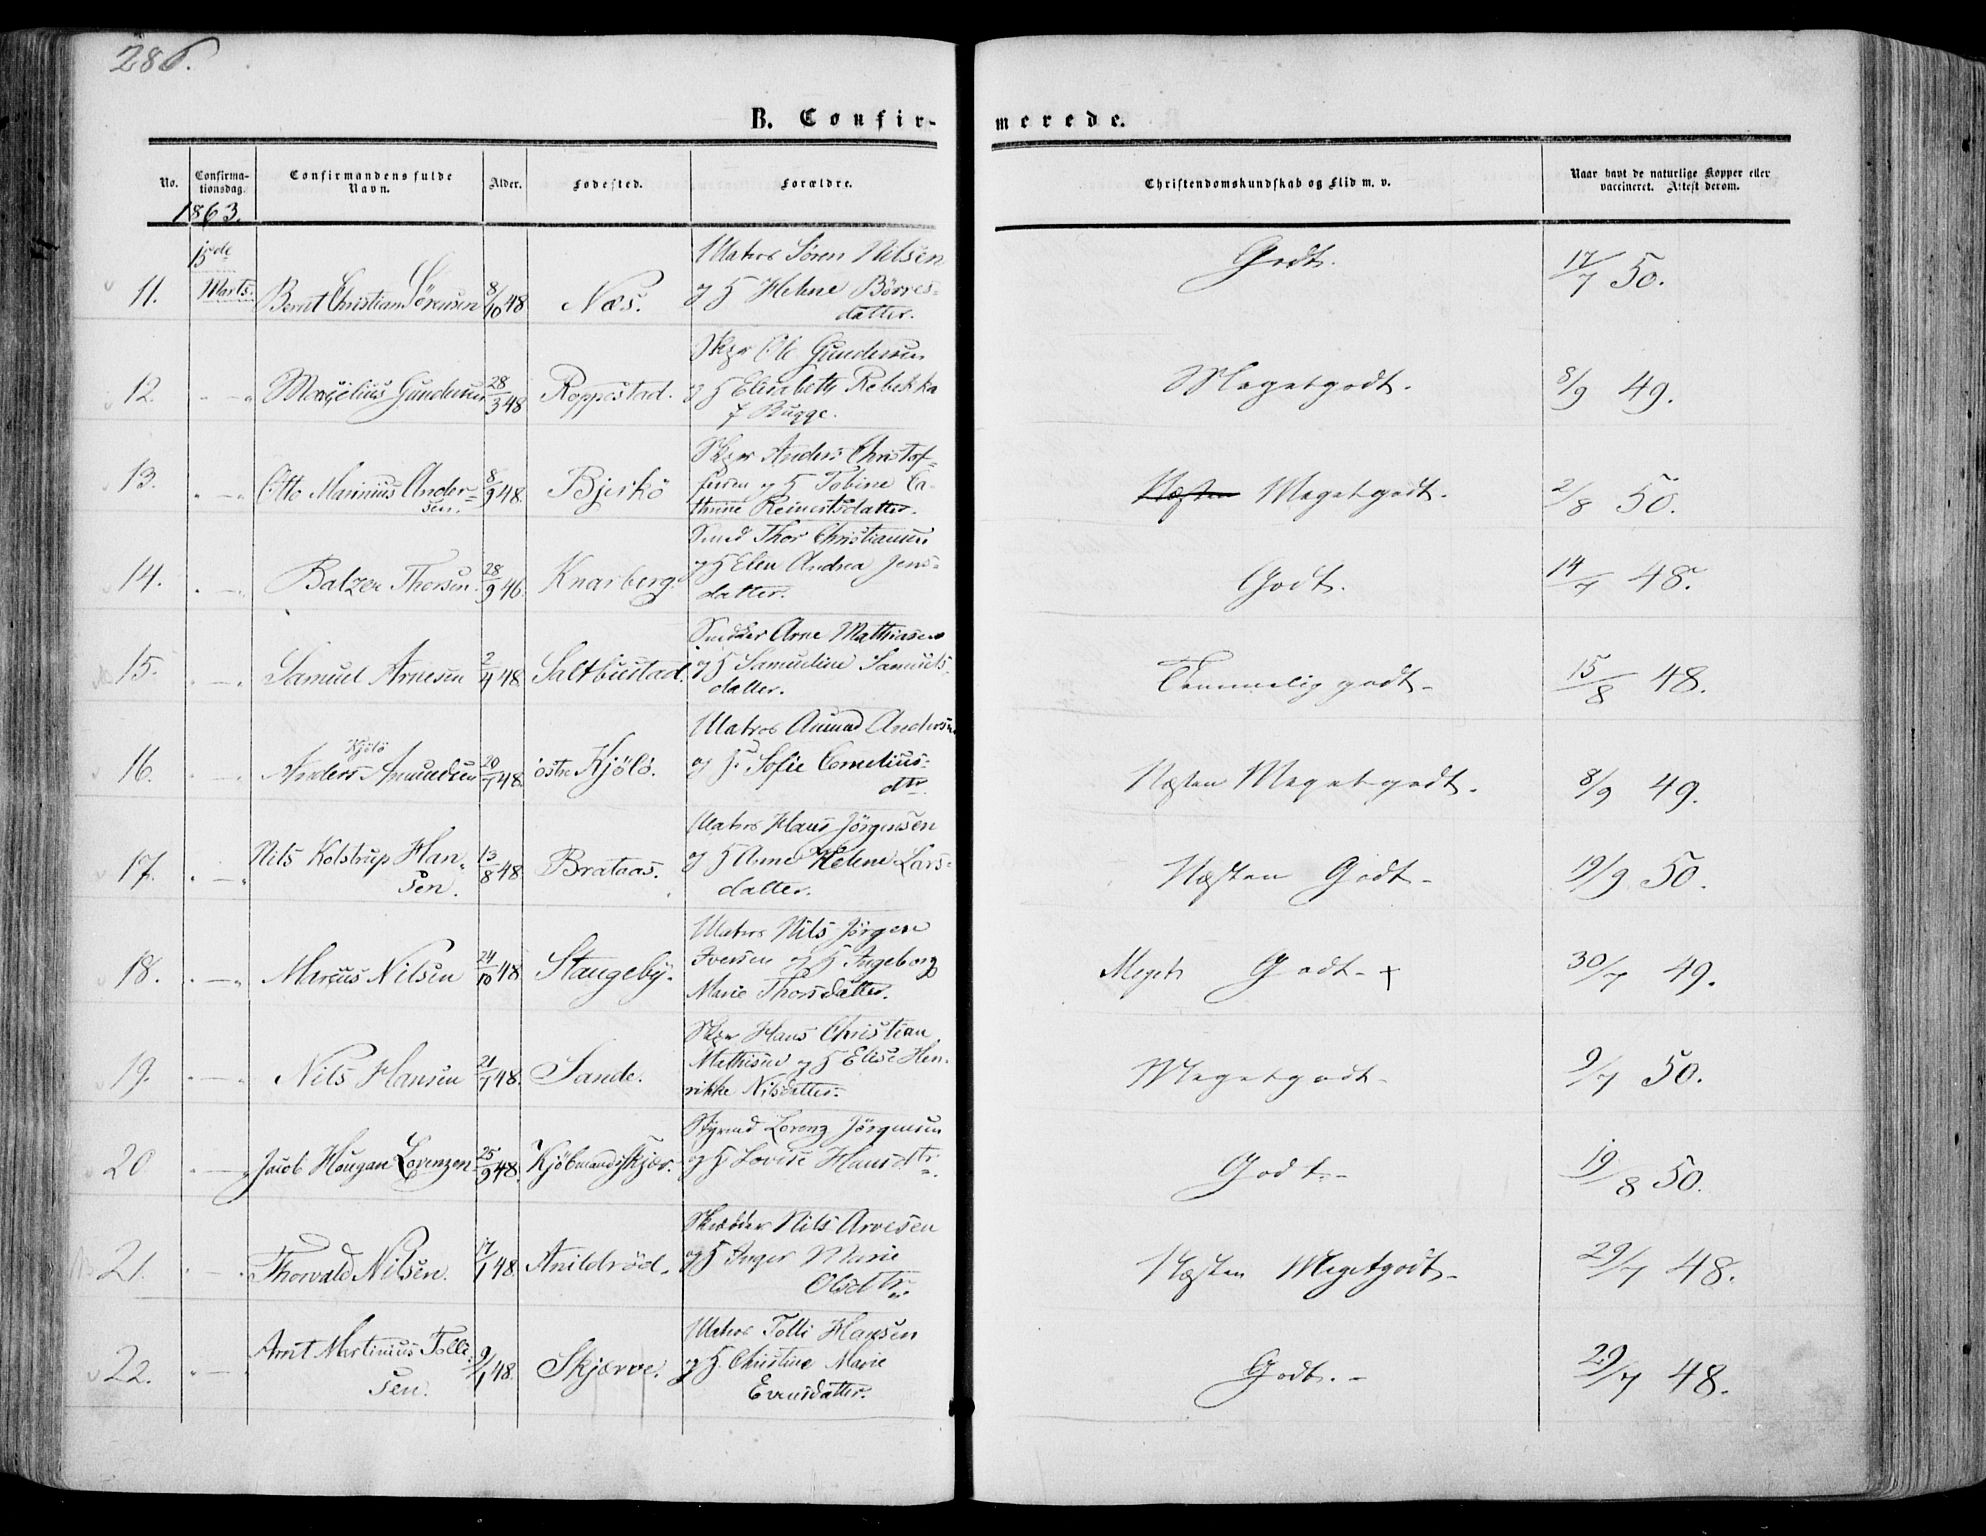 286.
B. Confir-
merede.
No.
Confirma-
tionsdag.
Confirmandens fulde
Navn.
Alder.
Fødested.
Forældre.
Christendomskundskab og Flid m. v.
Naar havt de naturlige Kopper eller
vaccineret. Attest derom.
1863.
15de
Marts.
11.
Bernt Christian Sörensen
8/10 48
Næs.
Matros Sören Nilsen
og H Helene Börres-
datter.
Godt.
17/7 50.
12.
" — "
Marcelius Gundersen
28/3 48
Roppestad.
Skpr Ole Gundersen
og H Elisabeth Rebekka
f Bugge.
Megetgodt.
8/9 49.
13.
" — "
Otto Marinius Ander-
sen.
8/9 48.
Bjerkö
Skpr Anders Christof-
fersen og H Tobine Ca-
thrine Reinertsdatter.
Næsten Megetgodt.
2/8 50.
14.
" — "
Balzer Thorsen.
28/9 46.
Knarberg.
Smed Thor Christiansen
og H Elen Andrea Jens-
datter.
Godt.
14/7 48.
15.
" — "
Samuel Arnesen
2/4 48.
Saltbustad.
Snedker Arne Mathiasen
og H Samueline Samuels-
datter.
Temmelig godt.
15/8 48.
16.
" — "
Kjölö
Anders Amundsen
20/1 48.
östre Kjölö.
Matros Amund Andersen
og H. Sofie Cornelius-
dtr
Næsten Megetgodt.
8/9 49.
17.
" — "
Nils Kolstrup Han-
sen.
13/8 48
Brataas.
Matros Hans Jörgensen
og H Anne Helene Lars-
datter.
Næsten Godt.
19/9 50.
18.
" — "
Marcus Nilsen
24/10 48
Stangeby.
Matros Nils Jörgen
Iversen og H Ingeborg
Marie Thorsdatter.
Meget Godt. +
30/7 49.
19.
" — "
Nils Hansen
21/1 48.
Sande.
Skpr Hans Christian
Mathisen og H Elise Hen-
rikke Nilsdatter.
Megetgodt.
9/7 50.
20
" — "
Jacob Hougan Lorenzen
25/9 48.
Kjöbmandsskjær.
Styrmd Lorenz Jörgensen
og H. Lovise Hansdtr.
Godt.
19/8 50.
21.
" — "
Thorvald Nilsen.
17/1 48.
Anildröd.
Skrædder Nils Arvesen
og H Inger Marie
Olsdtr.
Næsten Megetgodt.
29/7 48.
22.
" — "
Arnt Martinius Tolli-
sen.
9/1 48.
Skjærve.
Matros Tolli Hansen
og H. Christine Marie
Evensdatter.
Godt.
29/7 48.